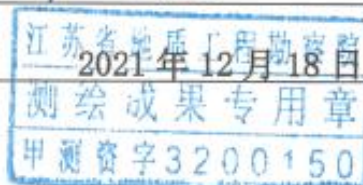 江苏省地质工程勘察院
2021 年 12 月 18 日
测绘成果专用章
甲测资字3200150